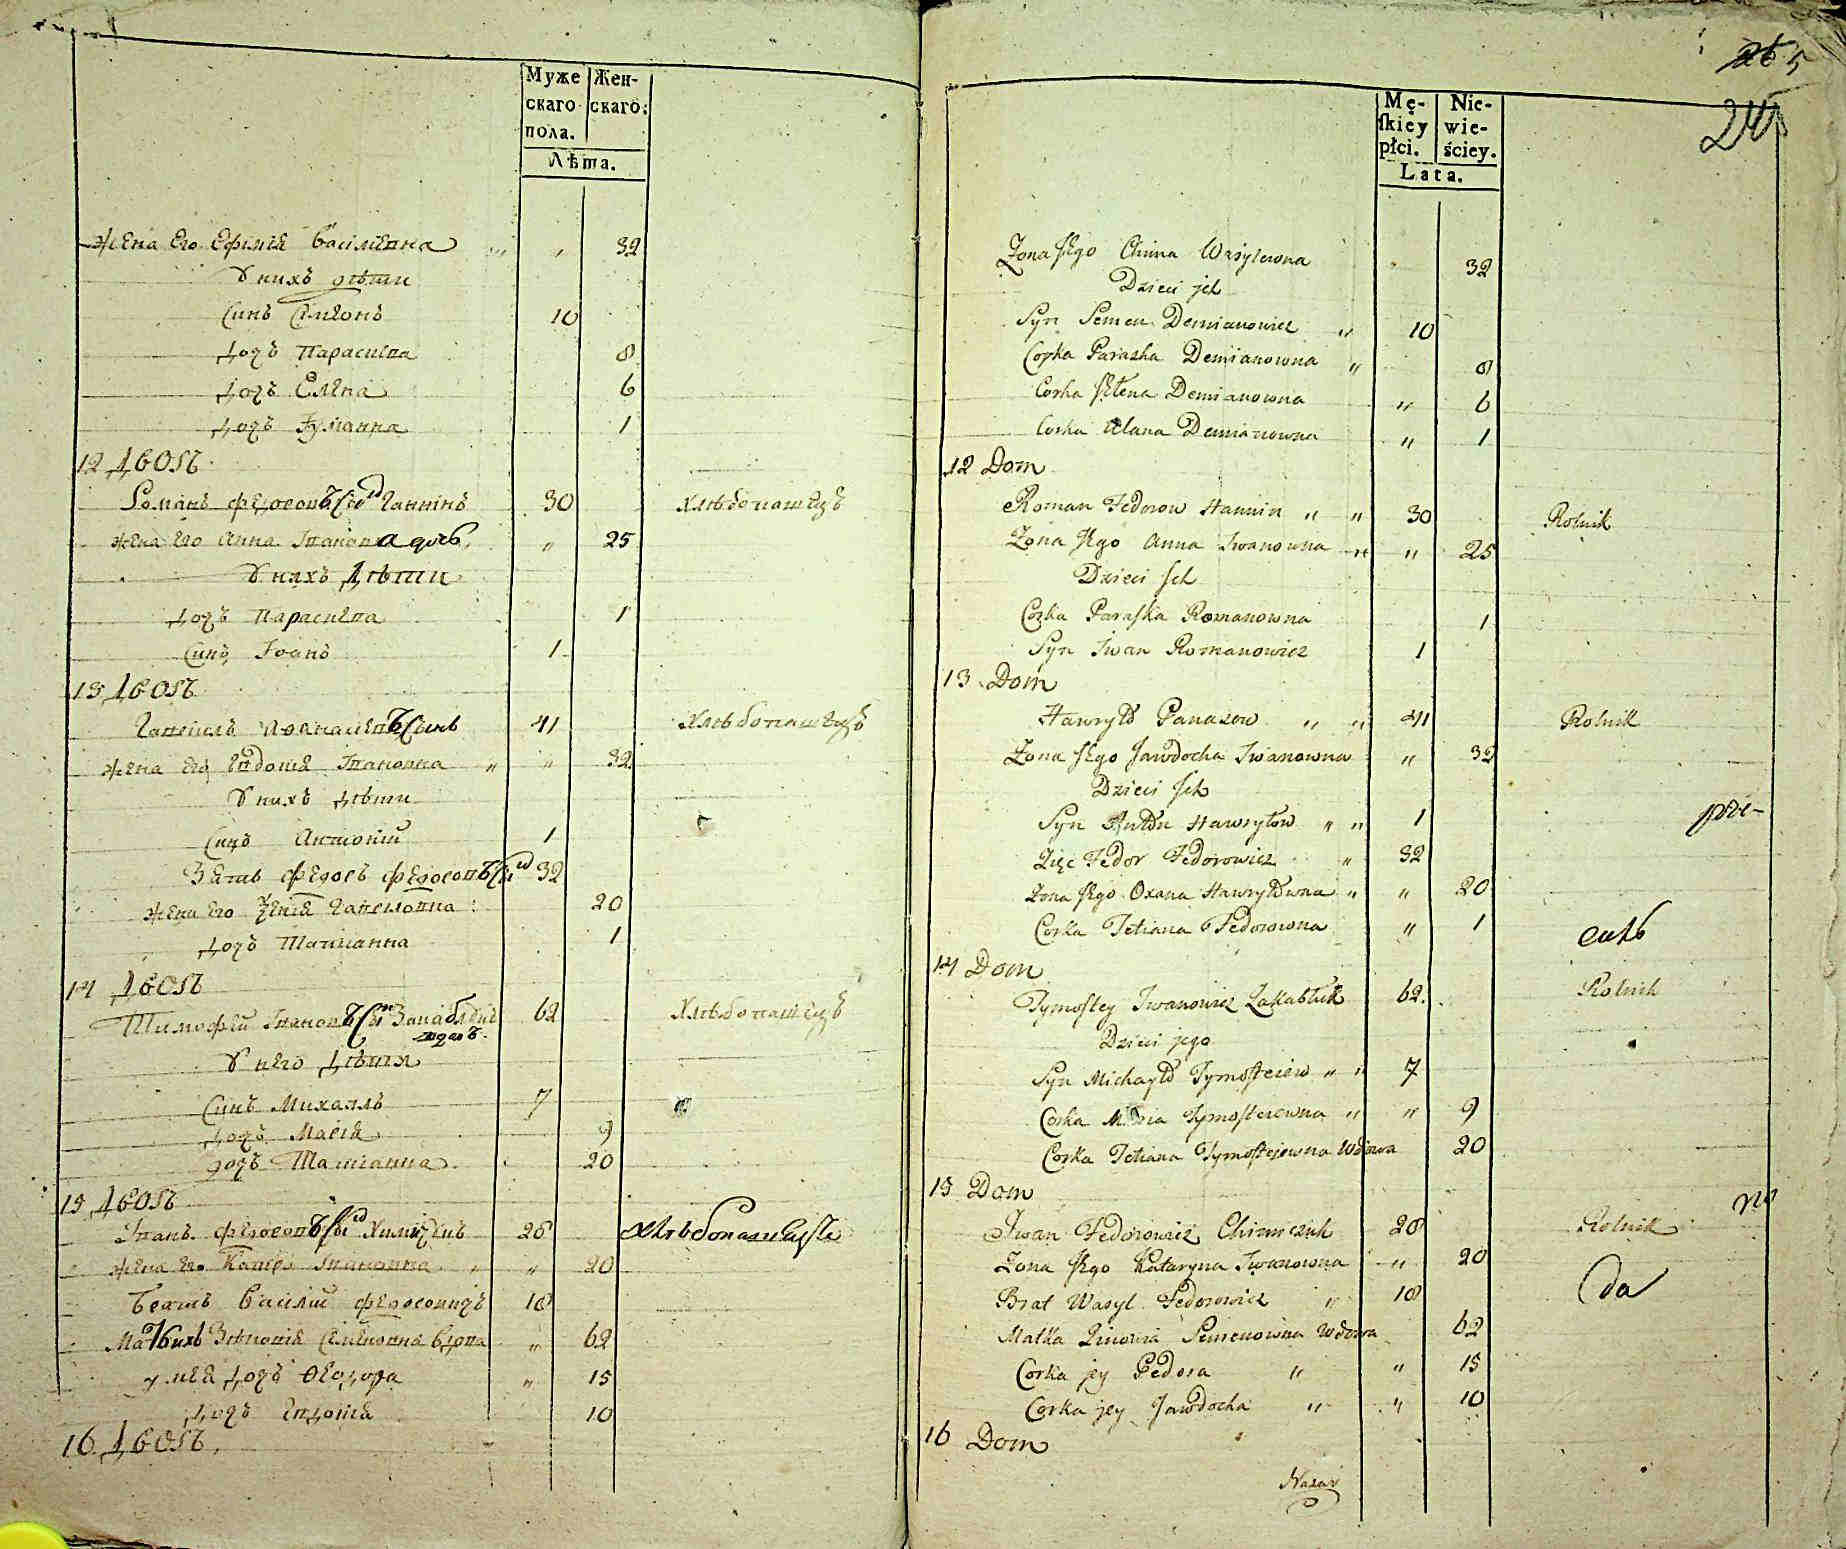 Муже
скаго
пола.
Жен-
скаго.
Лѣта.
жена Его Ефимія Василевна 32
У нихъ дѣти
Синъ Симеонъ 10
Дочъ Парасшва 8
Дочъ Елена 6
Дочъ Іуліанна 1
12 Дворъ
Романъ Федоровъ Сынъ Ганнинъ 30 Хлѣбопашецъ
жена Его Анна Іванова дочь 25
У нихъ Дѣти
Дочъ Парасшва 1
Синъ Іоанъ 1
13 Дворъ
Гавриилъ Афанасіевъ Сынъ 41 Хлѣбопашецъ
жена Его Евдокія Івановна 32
У нихъ Дѣти
Синъ Антоній 1
Зять Федоръ Федоровъ Сынъ 32
жена Его Гавриловна 20
Дочъ Татіанна 1
14 Дворъ
Тимофей Івановъ Сынъ 62 Хлѣбопашецъ
У него Дѣти
Синъ Михаилъ 7
Дочъ Марія 9
дочъ Татіанна 20
15 Дворъ
Іванъ Федоровъ Сынъ Химичукъ 28 хлѣбопашецъ
жена Его Івановна 20
Братъ Василій Федоровичъ 18
Мать ихъ Зѣновія Семеновна Вдова 62
у нея Дочъ Феодора 15
Дочъ Евдокія 10
16 Дворъ
5
24
Mę-
skiey
płci.
Nie-
wie-
ściey.
Lata.
Zona Jego Chima Wasylewna 32
Dzieci jch
Syn Semen Demianowicz 10
Corka Paraska Demianowna 8
Corka Jełena Demianowna 6
Corka Ulana Demianowna 1
12 Dom
Roman Fedorow Hannin 30 Rolnik
Zona Jego Anna Iwanowna 25
Dzieci Jch
Corka Paraska Romanowna 1
Syn Iwan Romanowicz 1
13 Dom
Hawryło Panasow 41 Rolnik
Zona Jego Jawdocha Iwanowna 32
Dzieci Jch
Syn Anton Hawryłow 1
Zięc Fedor Fedorowicz 32
Zona Jego Oxana Hawryłowna 20
Corka Tetiana Fedorowna 1
14 Dom
Tymoftey Iwanowicz Zakabłuk 62 Rolnik
Dzieci jego
Syn Michayło Tymofteiew 7
Corka Maria Tymofteiewna 9
Corka Tetiana Tymoftejowna Wdowa 20
15 Dom
Iwan Fedorowicz Chimiczuk 28 Rolnik
Zona Jego Kataryna Iwanowna 20
Brat Wasyl Fedorowicz 18
да
Matka Zinowia Semenowna Wdowa 62
Corka jey Fedora 15
Corka jey Jawdocha 10
16 Dom
Nazar